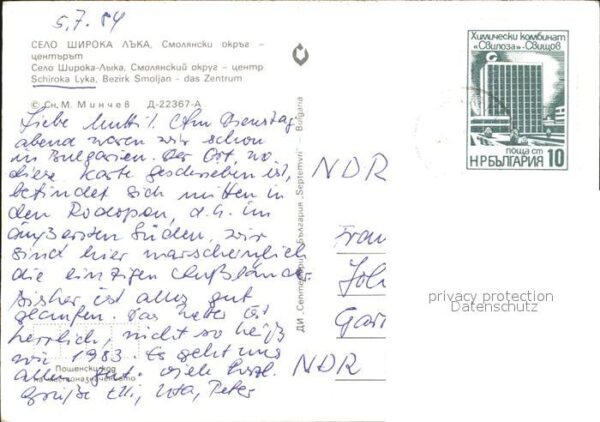 5.7.84
СЕЛО ШИРОКА ЛЪКА, Смолянски окръг –
центърът
Село Широка-Лыка, Смолянский округ – центр
Schiroka Lyka, Bezirk Smoljan - das Zentrum
© Сн. М. Минчев Д-22367-А
Liebe Mutti! Am Dienstag
abend waren wir schon
in Bulgarien. Der Ort, wo
diese Karte geschrieben ist,
befindet sich mitten in
den Rodopen, d.h. im
äußersten Süden, wir
sind hier warscheinlich
die einzigen Ausländer.
Bisher ist alles gut
gelaufen. Das Wetter ist
herrlich, nicht so heiß
wie 1983. Es geht uns
allen gut. Viele herzl.
Grüße Elli, Uta, Peter
Пощенски код
на местоназначението
ДИ „Септември“ България „Septemvri“ Bulgaria
Химически комбинат
«Свилоза»-Свищов
поща ст
НР БЪЛГАРИЯ 10
NDR
Frau
Joh
Gar
NDR
privacy protection
Datenschutz